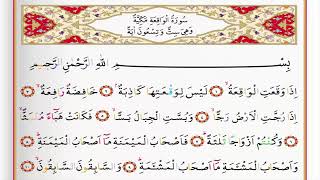 سُورَةُ الْوَاقِعَةِ مَكِّيَّةٌ
وَهِيَ سِتٌّ وَتِسْعُونَ آيَةً
بِسْمِ اللّٰهِ الرَّحْمٰنِ الرَّحِيمِ
اِذَا وَقَعَتِ الْوَاقِعَةُ ۙ لَيْسَ لِوَقْعَتِهَا كَاذِبَةٌ ۢ خَافِضَةٌ رَافِعَةٌ ۙ
اِذَا رُجَّتِ الْاَرْضُ رَجًّا ۙ وَبُسَّتِ الْجِبَالُ بَسًّا ۙ فَكَانَتْ هَبَٓاءً مُنْبَثًّا ۙ
وَكُنْتُمْ اَزْوَاجًا ثَلٰثَةً ۜ فَاَصْحَابُ الْمَيْمَنَةِ مَٓا اَصْحَابُ الْمَيْمَنَةِ ۜ
وَاَصْحَابُ الْمَشْـَٔمَةِ مَٓا اَصْحَابُ الْمَشْـَٔمَةِ ۜ وَالسَّابِقُونَ السَّابِقُونَ ۙ